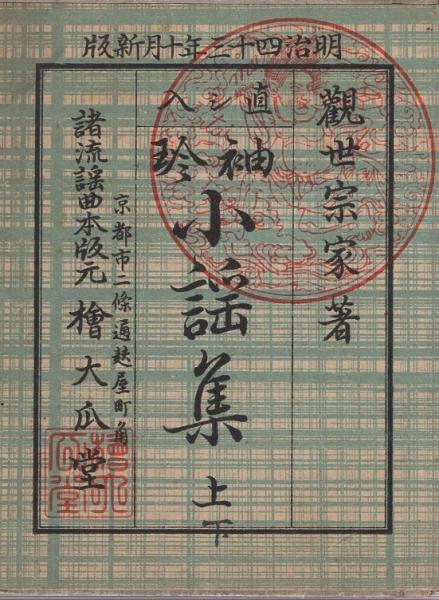 明治四十三年十月新版
觀世宗家著
直シ入
袖珍
小謡集 上下
京都市二條通麩屋町角
諸流謡曲本版元 檜大瓜堂